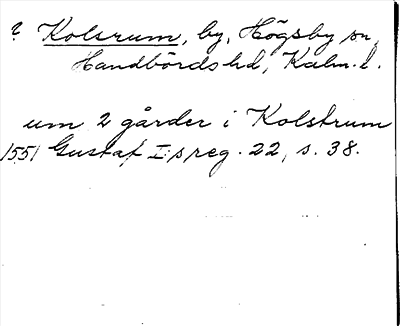 ? Kolsrum, by, Högsby sn,
Handbörds hd, Kalm. l.
um 2 gårder i Kolstrum
1551 Gustaf I:s reg. 22, s. 38.